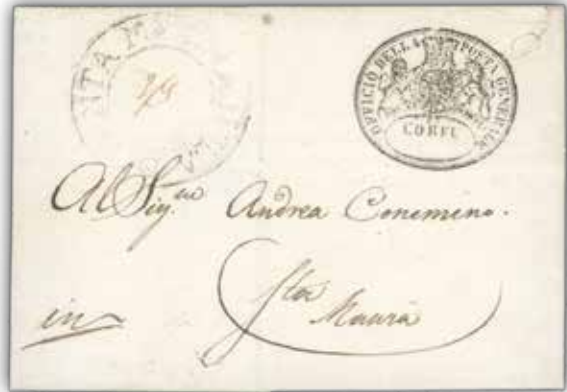 OFFICIO DELLA POSTA GENERALE
CORFU
Al Sig.re Andrea Conemeno.
Sta
Maura
in